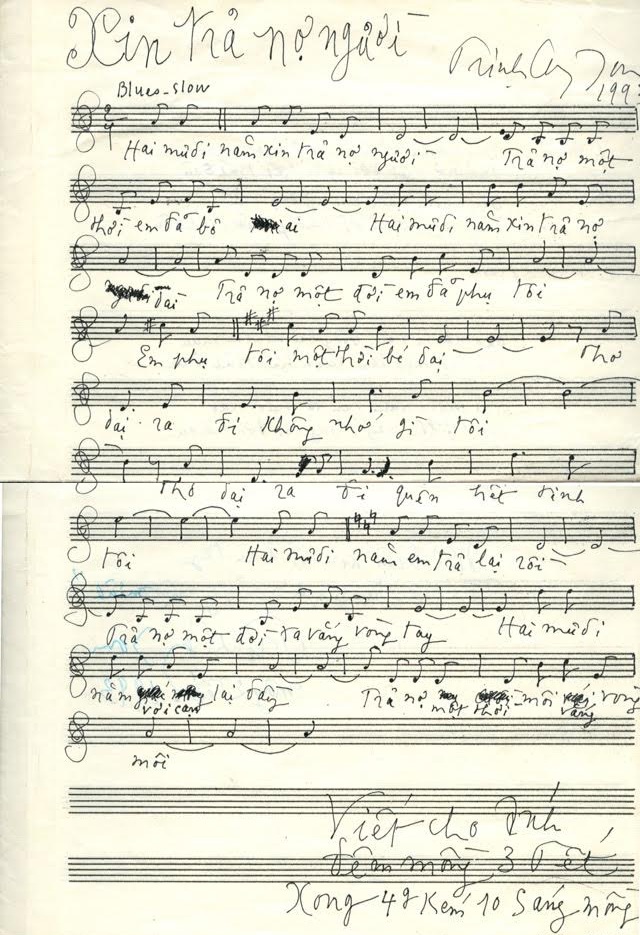 Xin trả nợ người
Trịnh Công Sơn
1993
Blues-slow
Hai mươi năm xin trả nợ người Trả nợ một
thời em đã bỏ ai Hai mươi năm xin trả nợ
dài Trả nợ một đời em đã phụ tôi
Em phụ tôi một thời bé dại Thơ
dại ra đi không nhớ gì tôi
Thơ dại ra đi quên hết tình
tôi Hai mươi năm em trả lại rồi
Trả nợ một đời xa vắng vòng tay Hai mươi
năm vơi cạn lại đầy Trả nợ một thời môi vắng vòng
môi
Viết cho
đêm mồng 3 Tết
Xong 4g kém 10 Sáng mồng